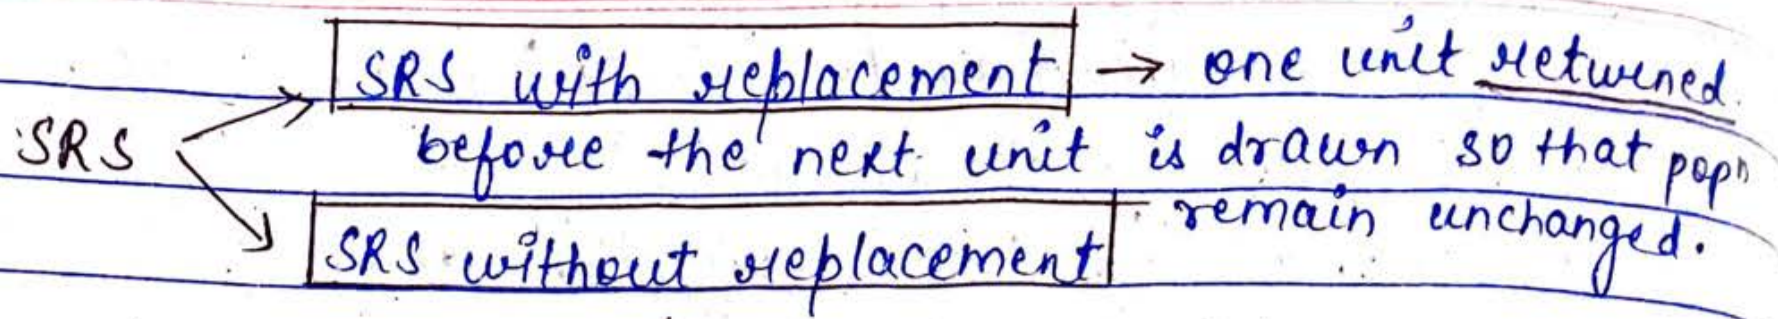 SRS with replacement → one unit returned
SRS
before the next unit is drawn so that popⁿ
remain unchanged.
SRS without replacement